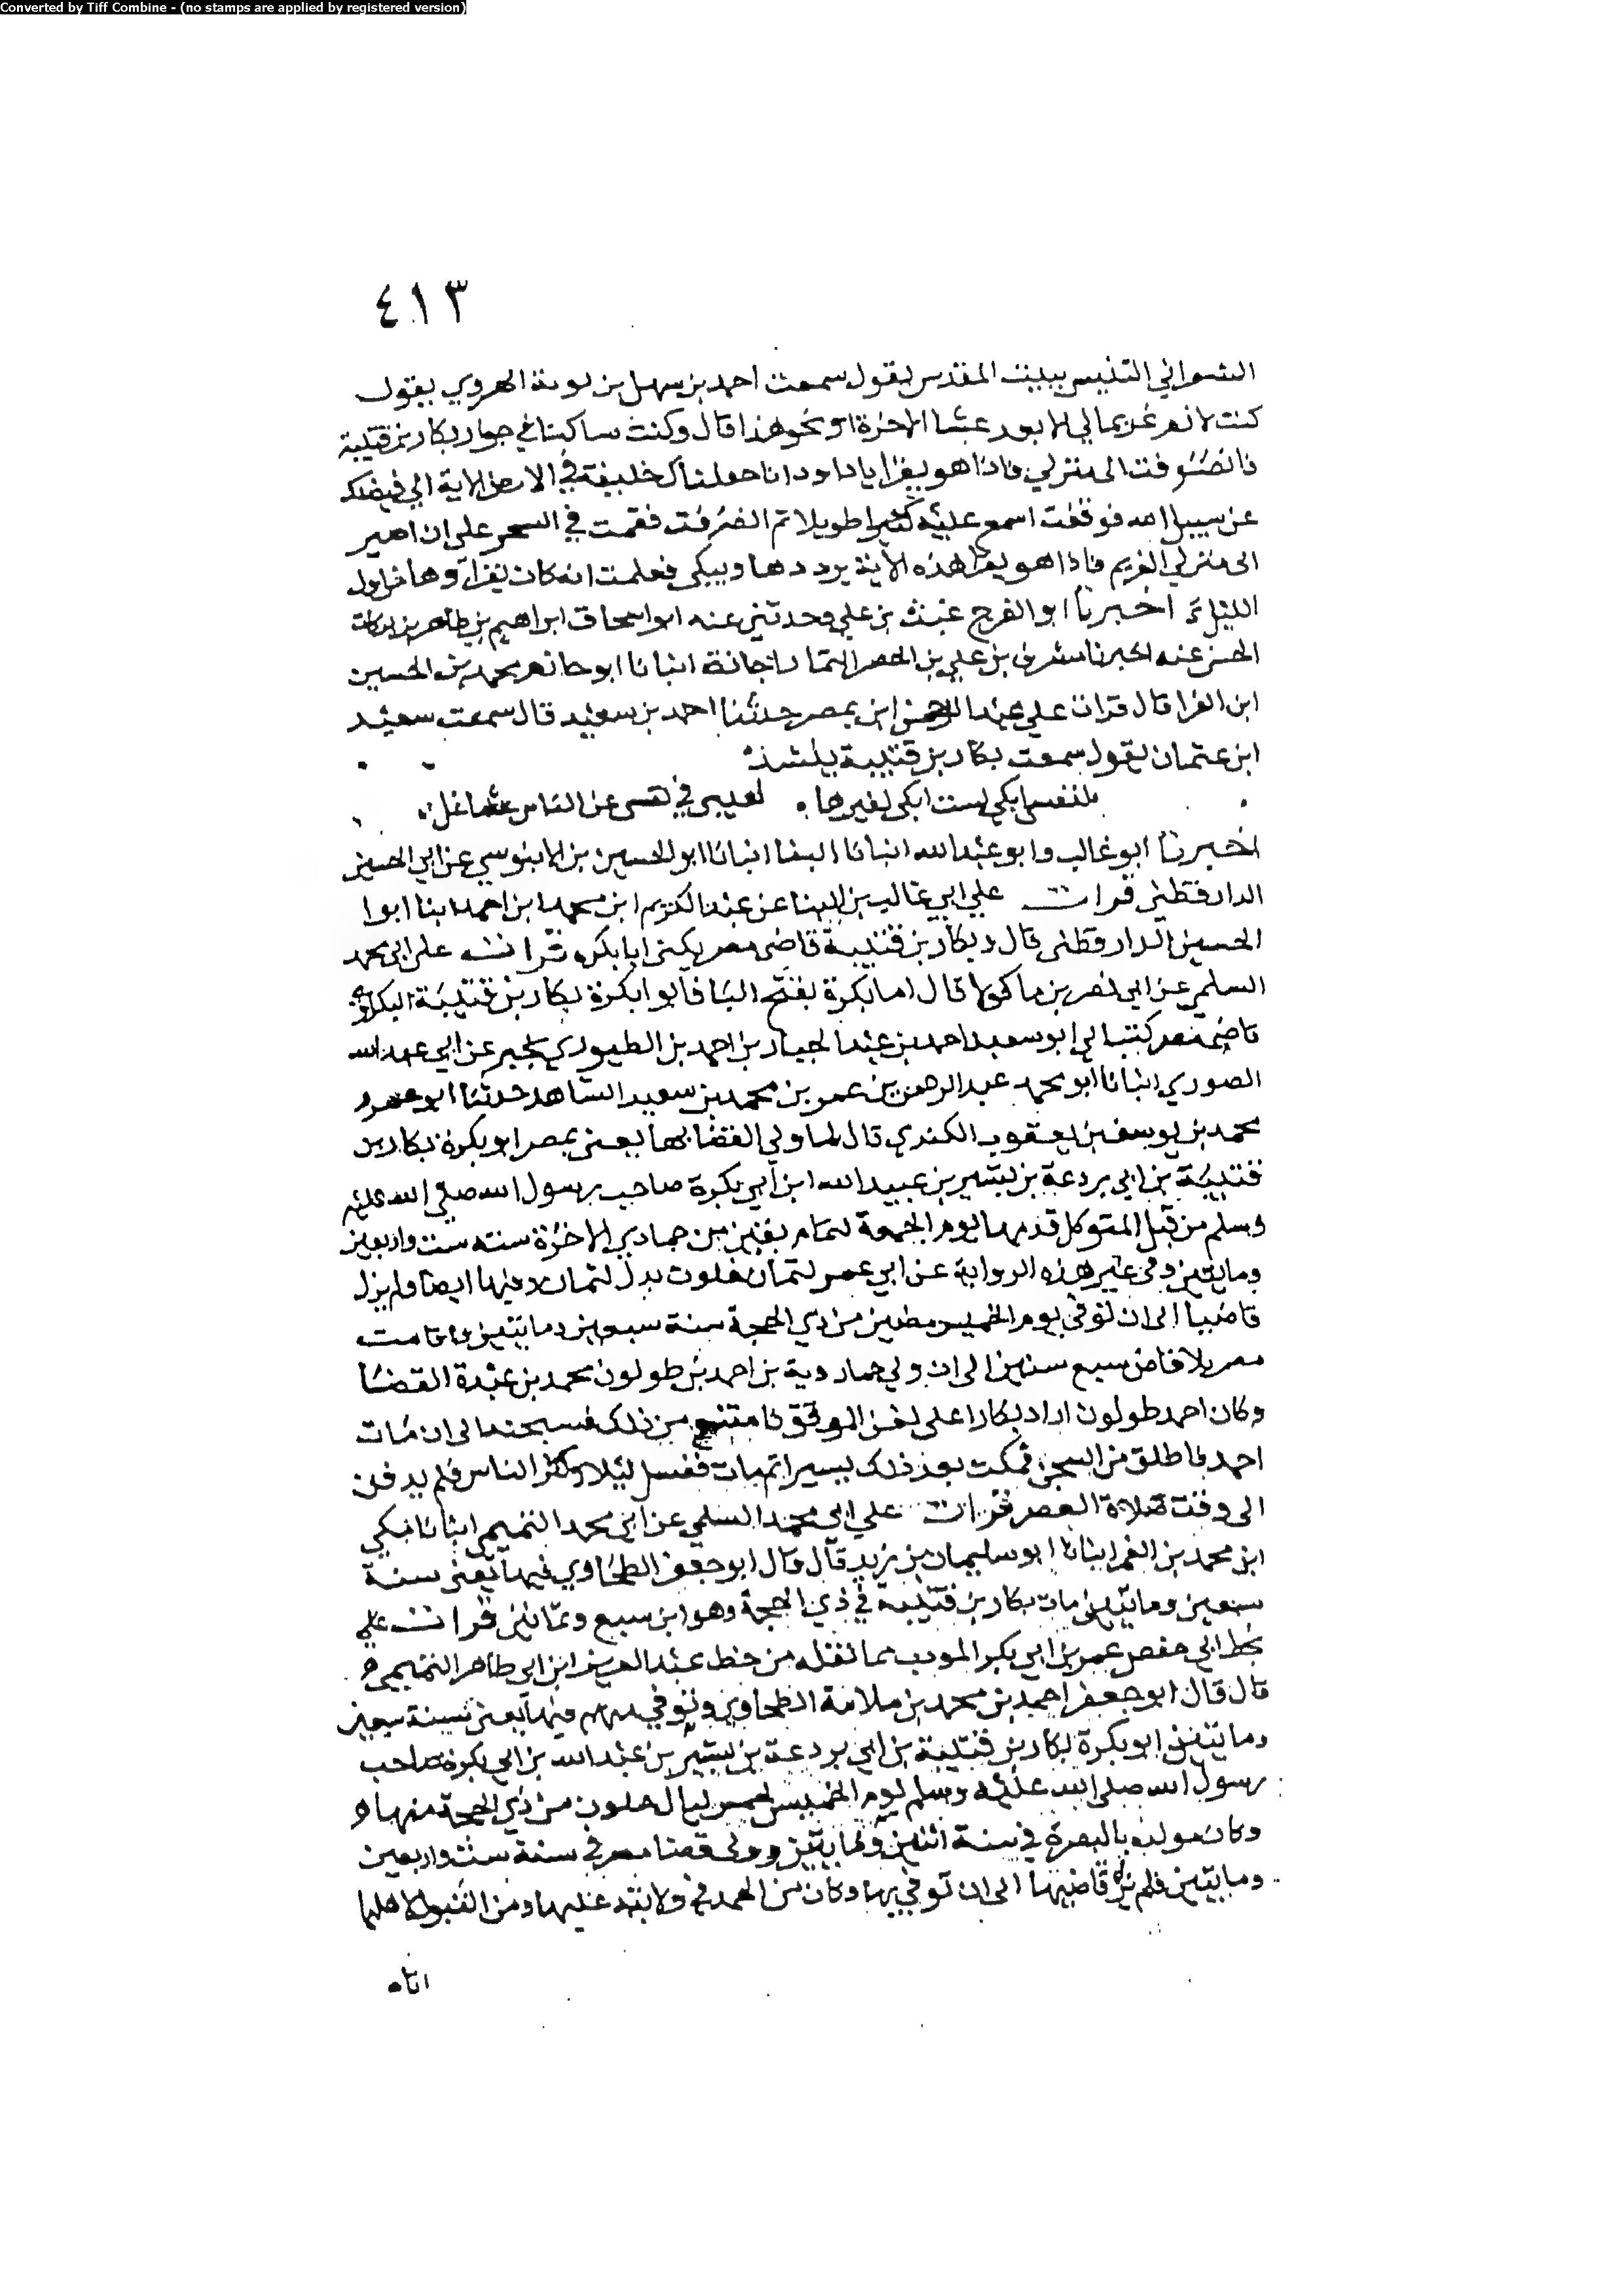 Converted by Tiff Combine - (no stamps are applied by registered version)
٤١٣
التنيسي ببيت المقدس يقول سمعت احمد بن سهل بن الهروي يقول
كنت الازم غريما لي الا بعد عشا الاخرة او نحو هذا قال وكنت ساكنا في جوار بكار بن قتيبة
فانصرفت الى منزلي فاذا هو يقرا ياداود انا جعلناك خليفة في الارض الاية الي فيضلك
عن سبيل الله فوقفت اسمع عليه طويلا ثم انصرفت فقمت في السحر على ان اصير
الى منزلي الغريم فاذا هو يقرا هذه الاية يرددها ويبكي فعلمت انه كان يقرأوها من اول
الليل اخبرنا ابو الفرج غيث بن علي وحدثني عنه ابو اسحاق ابراهيم بن طاهر بن بركات
عنه اخبرنا بن علي بن الخضر اجانة انبانا ابو حازم محمد بن الحسين
ابن الفرا قال قرات على بمصر حدثنا احمد بن سعيد قال سمعت سعيد
ابن عثمان يقول سمعت بكار بن قتيبة ينشد
لنفسي ابكي لست ابكي لغيرها لعيبي في نفسي عن الناس شاغل
اخبرنا ابو غالب وابو عبد الله انبانا البنا انبانا ابو الحسين بن الابنوسي عن ابي الحسين
الدارقطني قرات علي ابي غالب بن البنا عن عبد الكريم ابن محمد ابن احمد ابنا ابوا
الحسين الدارقطني قال وبكار بن قتيبة قاضي مصر يكنى ابا بكره قرات على ابي محمد
السلمي عن ابي نصر بن ماكولا قال اما بكرة بفتح البا فابو ابكرة بكار بن قتيبة البكراوي
قاضي مصر كتب الي ابو سعيد احمد بن عبد الجبار بن احمد بن الطيوري يخبر عن ابي عبد الله
الصوري انبانا ابو محمد عبد الرحمن بن عمر بن محمد بن سعيد الشاهد حدثنا ابو عمر
محمد بن يوسف بن يعقوب الكندي قال لما ولي القضا بها يعني بمصر ابو بكرة بكار بن
قتيبة بن ابي بردعة بن بشير بن عبيد الله ابن ابي بكرة صاحب رسول الله صلى الله عليه
وسلم من قبل المتوكل قدمها يوم الجمعة لثمان بقين من جمادي الاخرة سنه ست واربعين
ومايتين وفي غير هذه الرواية عن ابي عمر لثمان خلون بدل لثمان وفيها ايضا ولم يزل
قاضيا الى ان توفي يوم الخميس من ذي الحجة سنة سبعين ومايتين فاقامت
مصر بلا قاض سبع سنين الى ان ولي خمارويه بن احمد بن طولون محمد بن عبدة القضا
وكان احمد طولون اراد بكارا على لعن الموفق فامتنع من ذلك فسجنه الى ان مات
احمد فاطلق من السجن فمكث بعد ذلك يسيرا ثم مات فغسل ليلا وكثر الناس فلم يدفن
الى وقت صلاة العصر قرات علي ابي محمد السلمي عن ابي محمد التميمي انبانا مكي
ابن محمد بن الغمر انبانا ابو سليمان بن زبر قال قال ابو جعفر الطحاوي فيها يعني سنة
سبعين ومايتين مات بكار بن قتيبة في ذي الحجة وهو ابن سبع وثمانين قرات علي
بخط ابي حفص عمر بن ابي بكر المودب مما نقله من خط عبد العزيز ابن ابي طاهر التميمي
قال قال ابو جعفر احمد بن محمد بن سلامة الطحاوي وتوفي فيها يعني سنة سبعين
ومايتين ابو بكرة بكار بن قتيبة بن ابي بردعة بن بشير بن عبد الله بن ابي بكرة صاحب
رسول الله صلى الله عليه وسلم يوم الخميس لخمس ليال خلون من ذي الحجة منها
وكان مولده بالبصرة في سنة اثنتين وثمانين وولي قضا مصر في سنة ست واربعين
ومايتين فلم يزل قاضيها الى ان توفي بها وكان من الحمد في ولايته عليها ومن القبول لاهلها
اياه